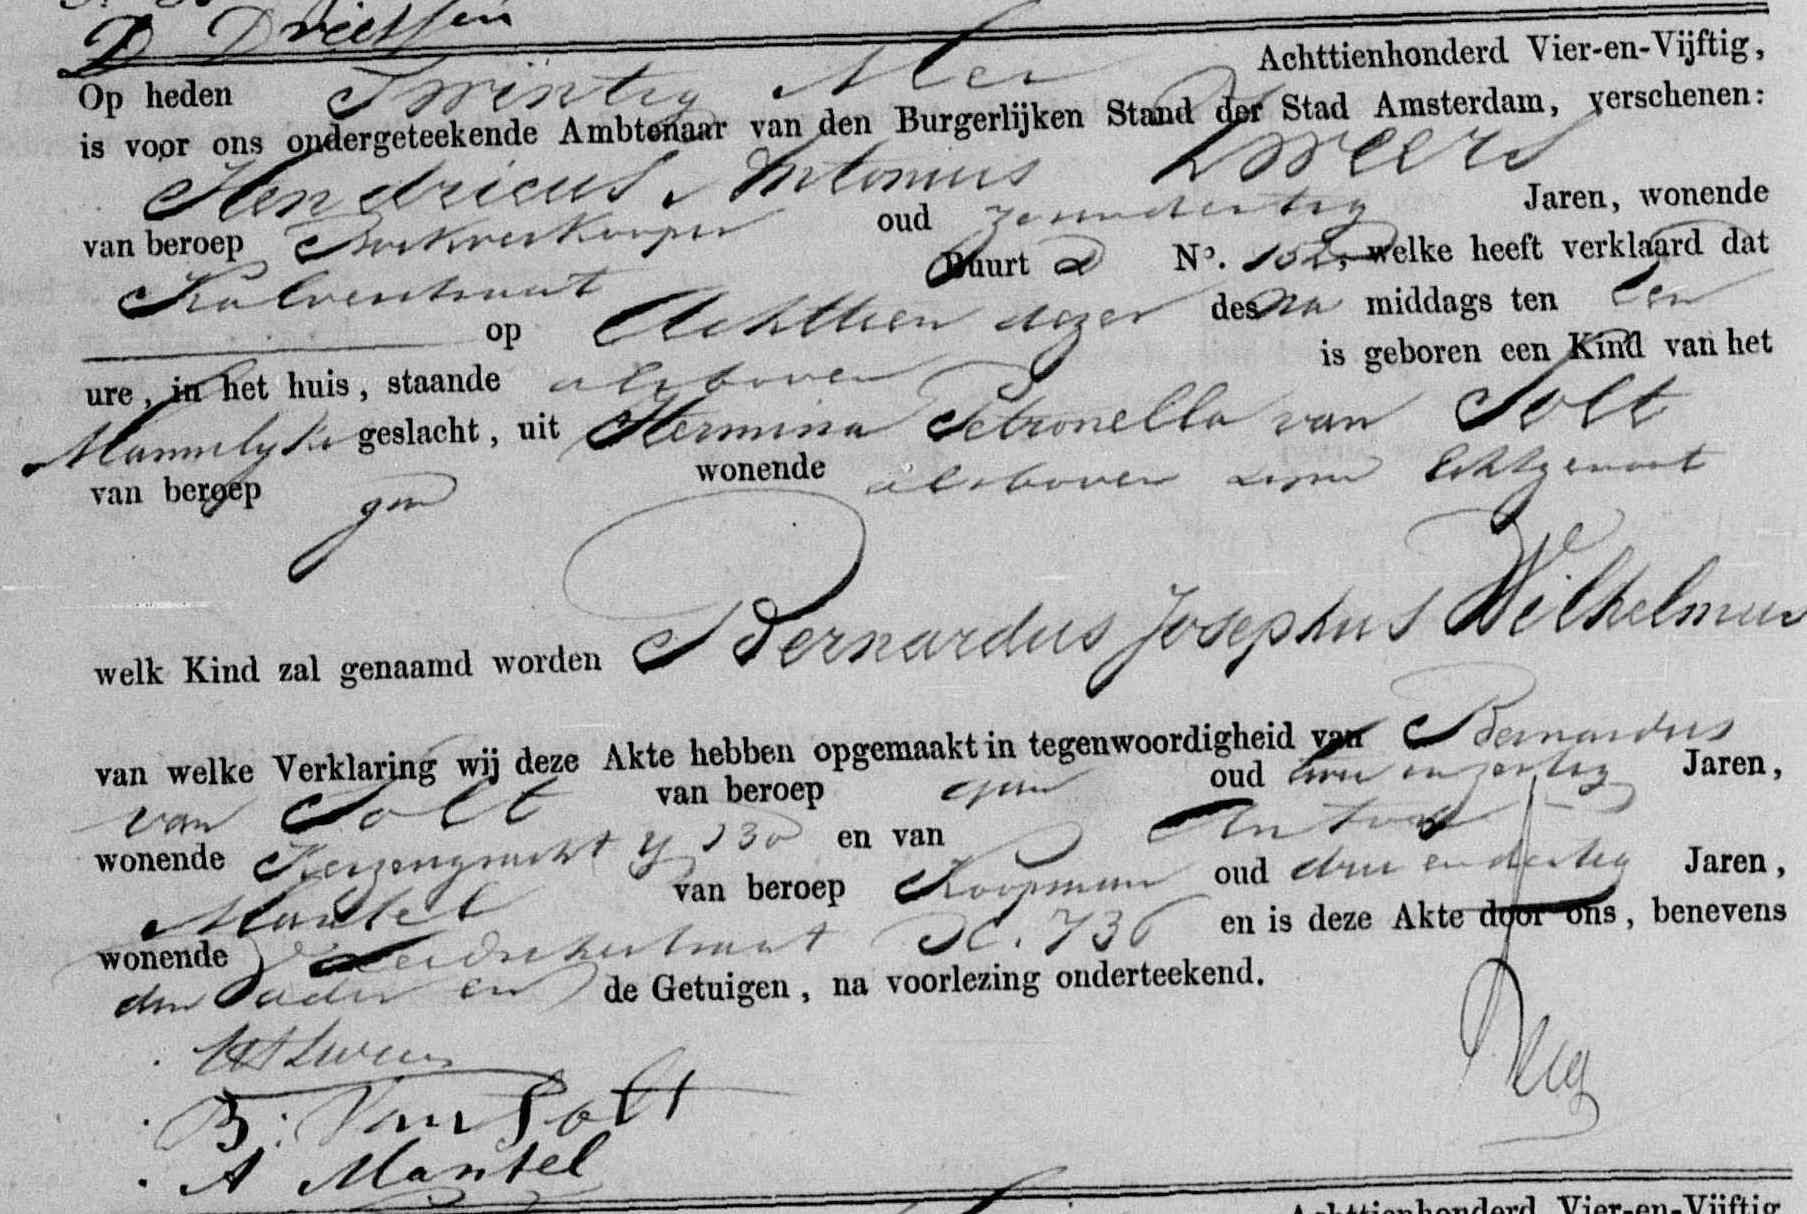 D Driessen
Op heden Twintig Mei Achttienhonderd Vier-en-Vijftig,
is voor ons ondergeteekende Ambtenaar van den Burgerlijken Stand der Stad Amsterdam, verschenen:
Hendricus Antonius Zweers
van beroep Boekverkooper oud zesendertig Jaren, wonende
Kalverstraat Buurt D N°. 152, welke heeft verklaard dat
op Achttien dezer des na middags ten een
ure, in het huis, staande alsboven is geboren een Kind van het
Mannelyke geslacht, uit Hermina Petronella van Solt
van beroep geen wonende alsboven zyne Echtgenoot
welk Kind zal genaamd worden Bernardus Josephus Wilhelmus
van welke Verklaring wij deze Akte hebben opgemaakt in tegenwoordigheid van Bernardus
van Solt van beroep geen oud twee en zestig Jaren,
wonende Keizersgracht Y 130 en van Antoon
Mantel van beroep Koopman oud drie en dertig Jaren,
wonende Leidschestraat 736 en is deze Akte door ons, benevens
den Vader en de Getuigen, na voorlezing onderteekend.
HA Zweers
B. Van Solt
A Mantel
Achttienhonderd Vier-en-Vijftig